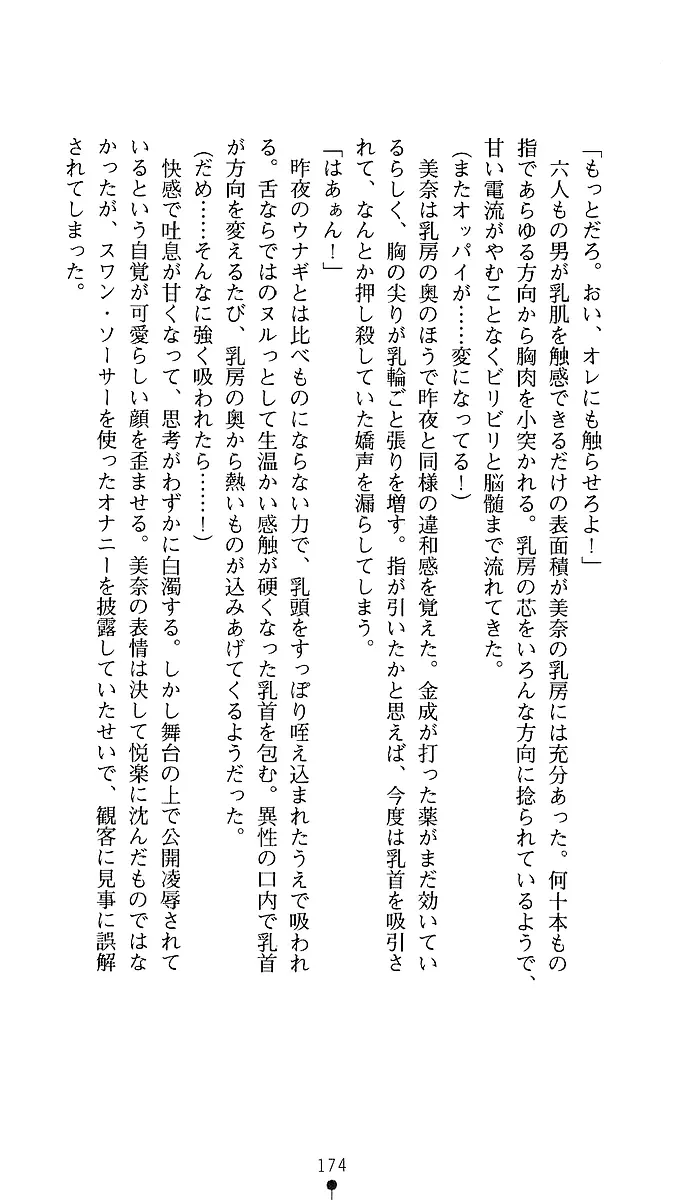 「もっとだろ。おい、オレにも触らせろよ！」
六人もの男が乳肌を触感できるだけの表面積が美奈の乳房には充分あった。何十本もの
指であらゆる方向から胸肉を小突かれる。乳房の芯をいろんな方向に捻られているようで、
甘い電流がやむことなくビリビリと脳髄まで流れてきた。
(またオッパイが……変になってる！)
美奈は乳房の奥のほうで昨夜と同様の違和感を覚えた。金成が打った薬がまだ効いてい
るらしく、胸の尖りが乳輪ごと張りを増す。指が引いたかと思えば、今度は乳首を吸引さ
れて、なんとか押し殺していた嬌声を漏らしてしまう。
「はあぁん！」
昨夜のウナギとは比べものにならない力で、乳頭をすっぽり咥え込まれたうえで吸われ
る。舌ならではのヌルっとして生温かい感触が硬くなった乳首を包む。異性の口内で乳首
が方向を変えるたび、乳房の奥から熱いものが込みあげてくるようだった。
(だめ……そんなに強く吸われたら……！)
快感で吐息が甘くなって、思考がわずかに白濁する。しかし舞台の上で公開凌辱されて
いるという自覚が可愛らしい顔を歪ませる。美奈の表情は決して悦楽に沈んだものではな
かったが、スワン・ソーサーを使ったオナニーを披露していたせいで、観客に見事に誤解
されてしまった。
174